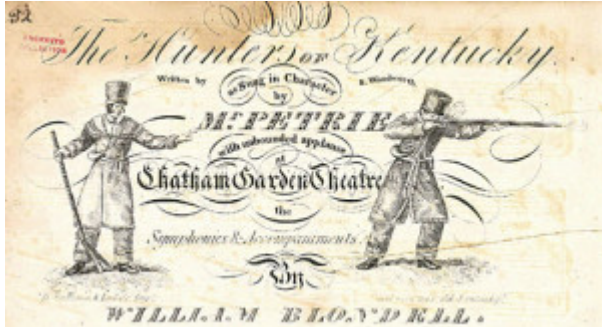 32
The Hunters OF Kentucky.
Written by
as Sung in Character
S. Woodworth,
by
Mr. PETRIE
with unbounded applause
at
Chatham Garden Theatre
the
Symphonies & Accompaniments,
By
WILLIAM BLONDELL.